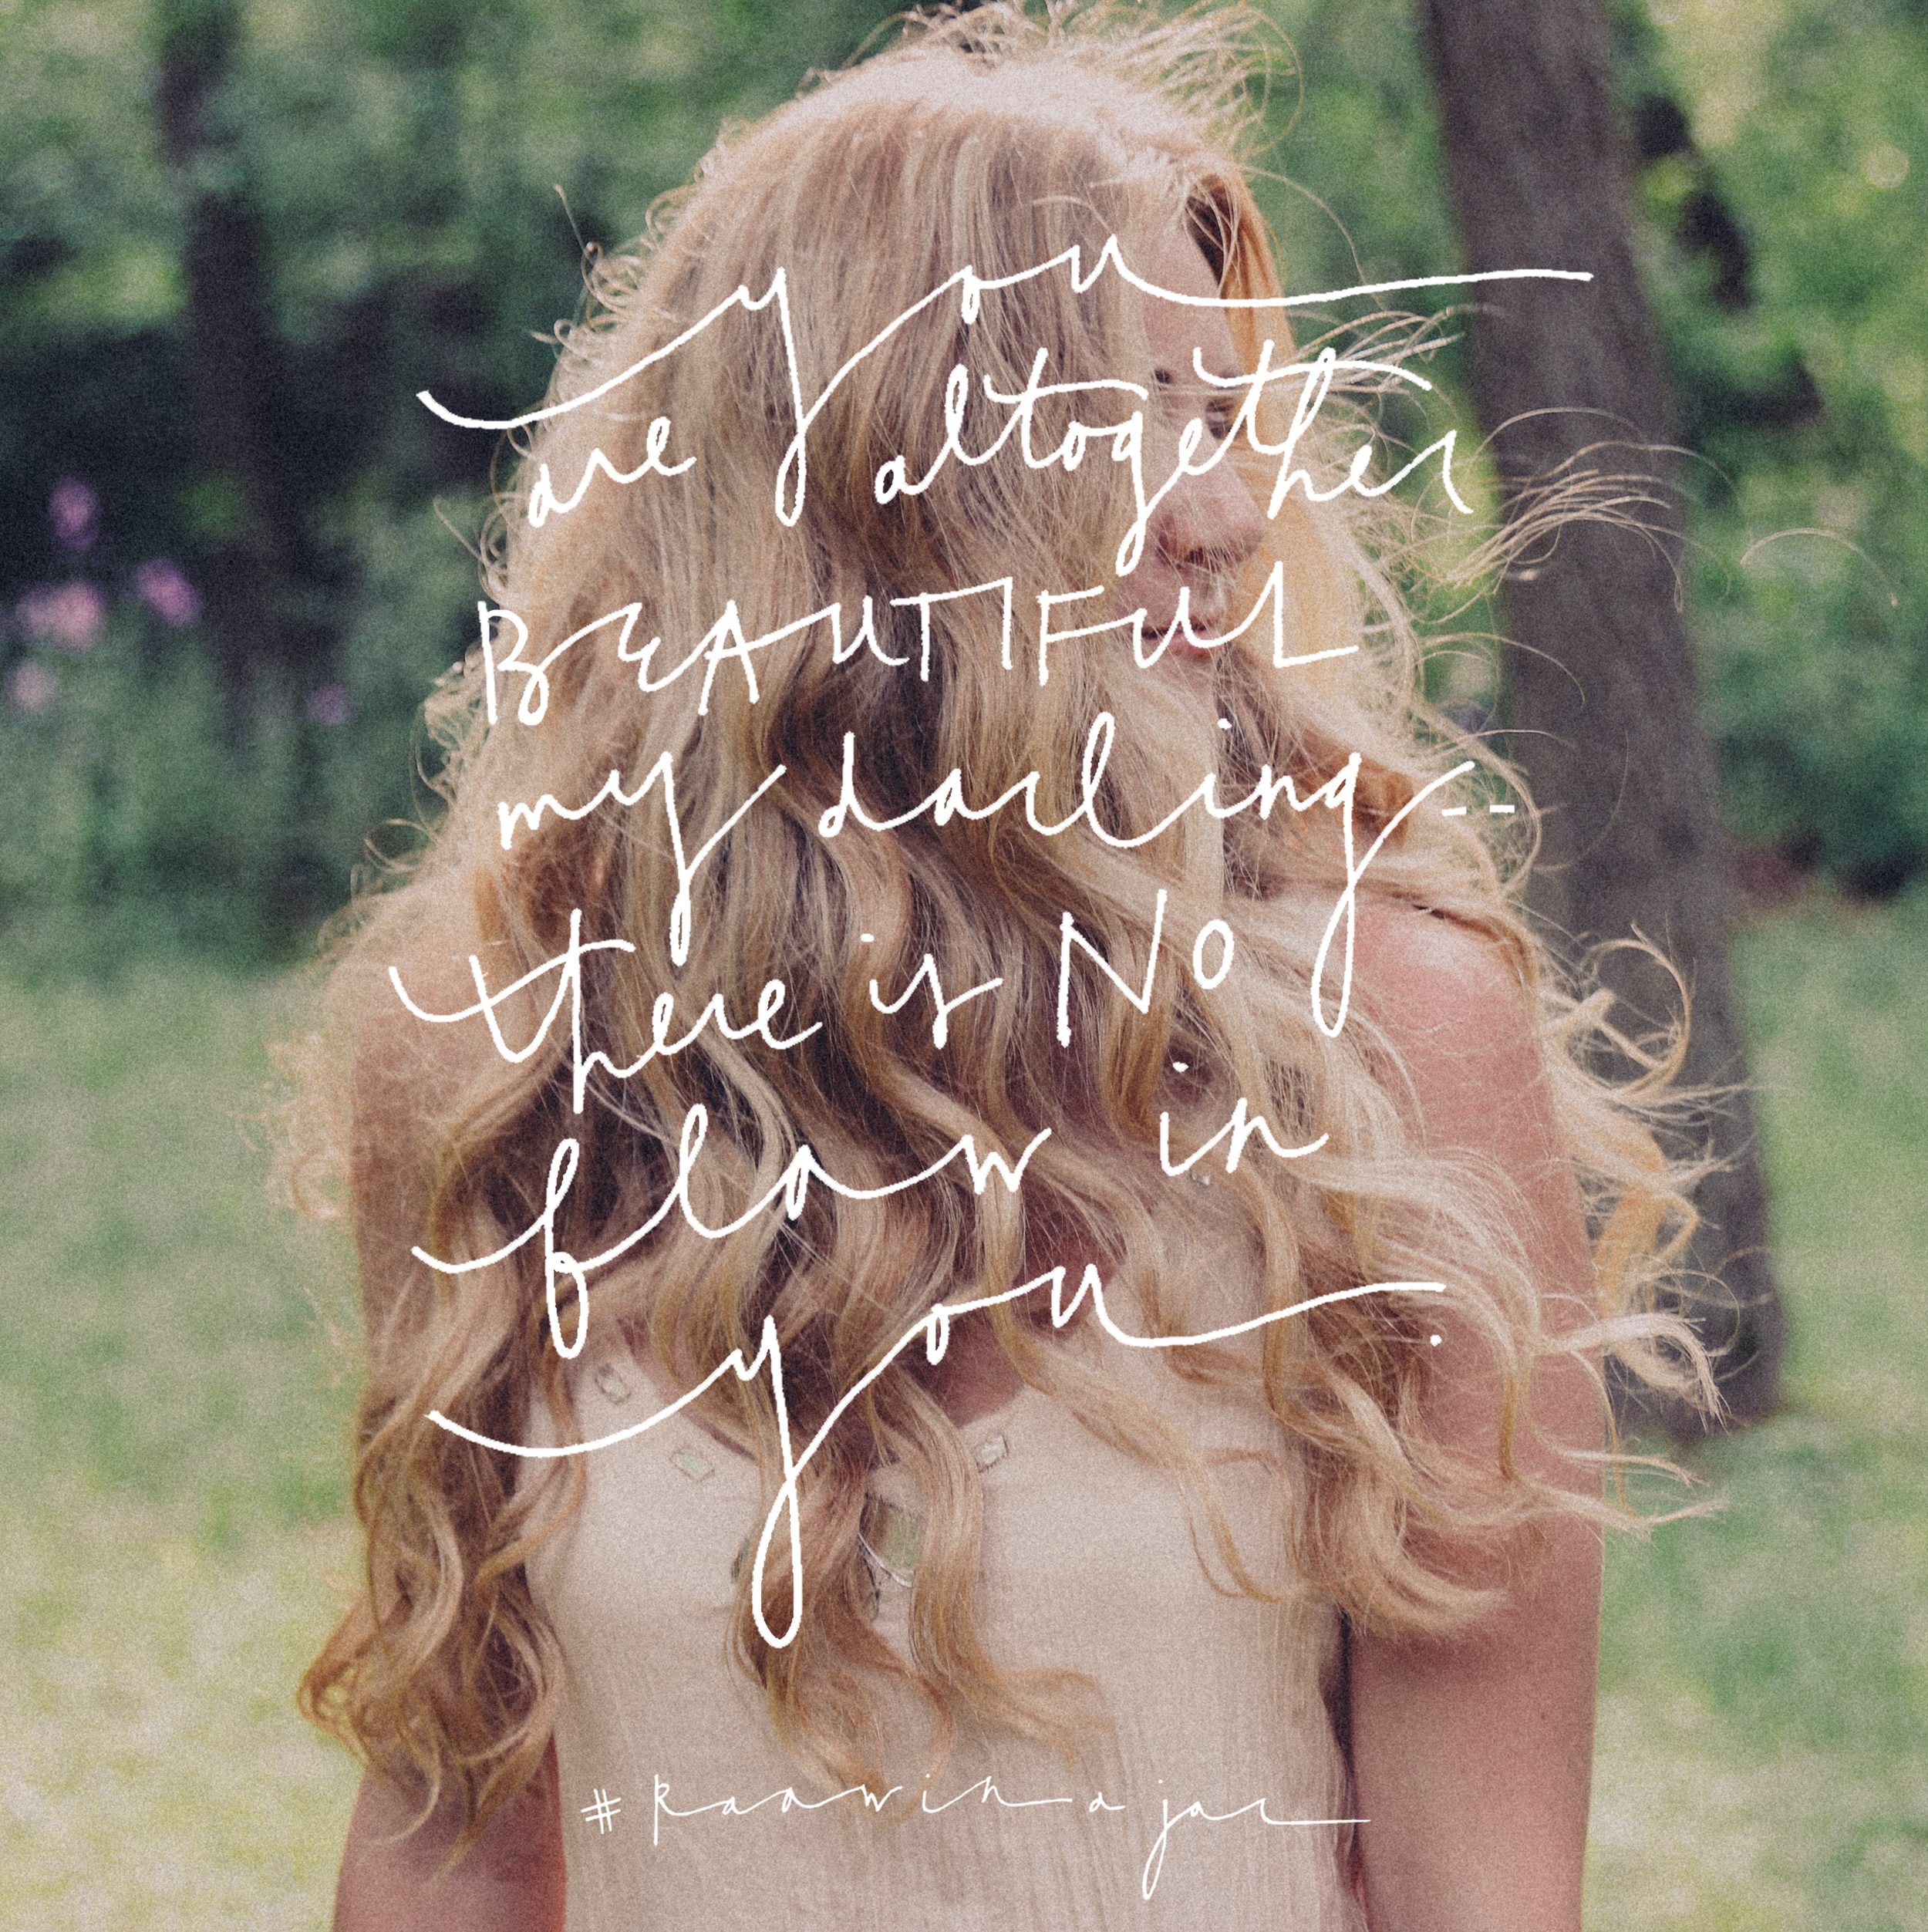 you
are altogether
BEAUTIFUL
my darling--
there is NO
flaw in
you.
#Raawinajar